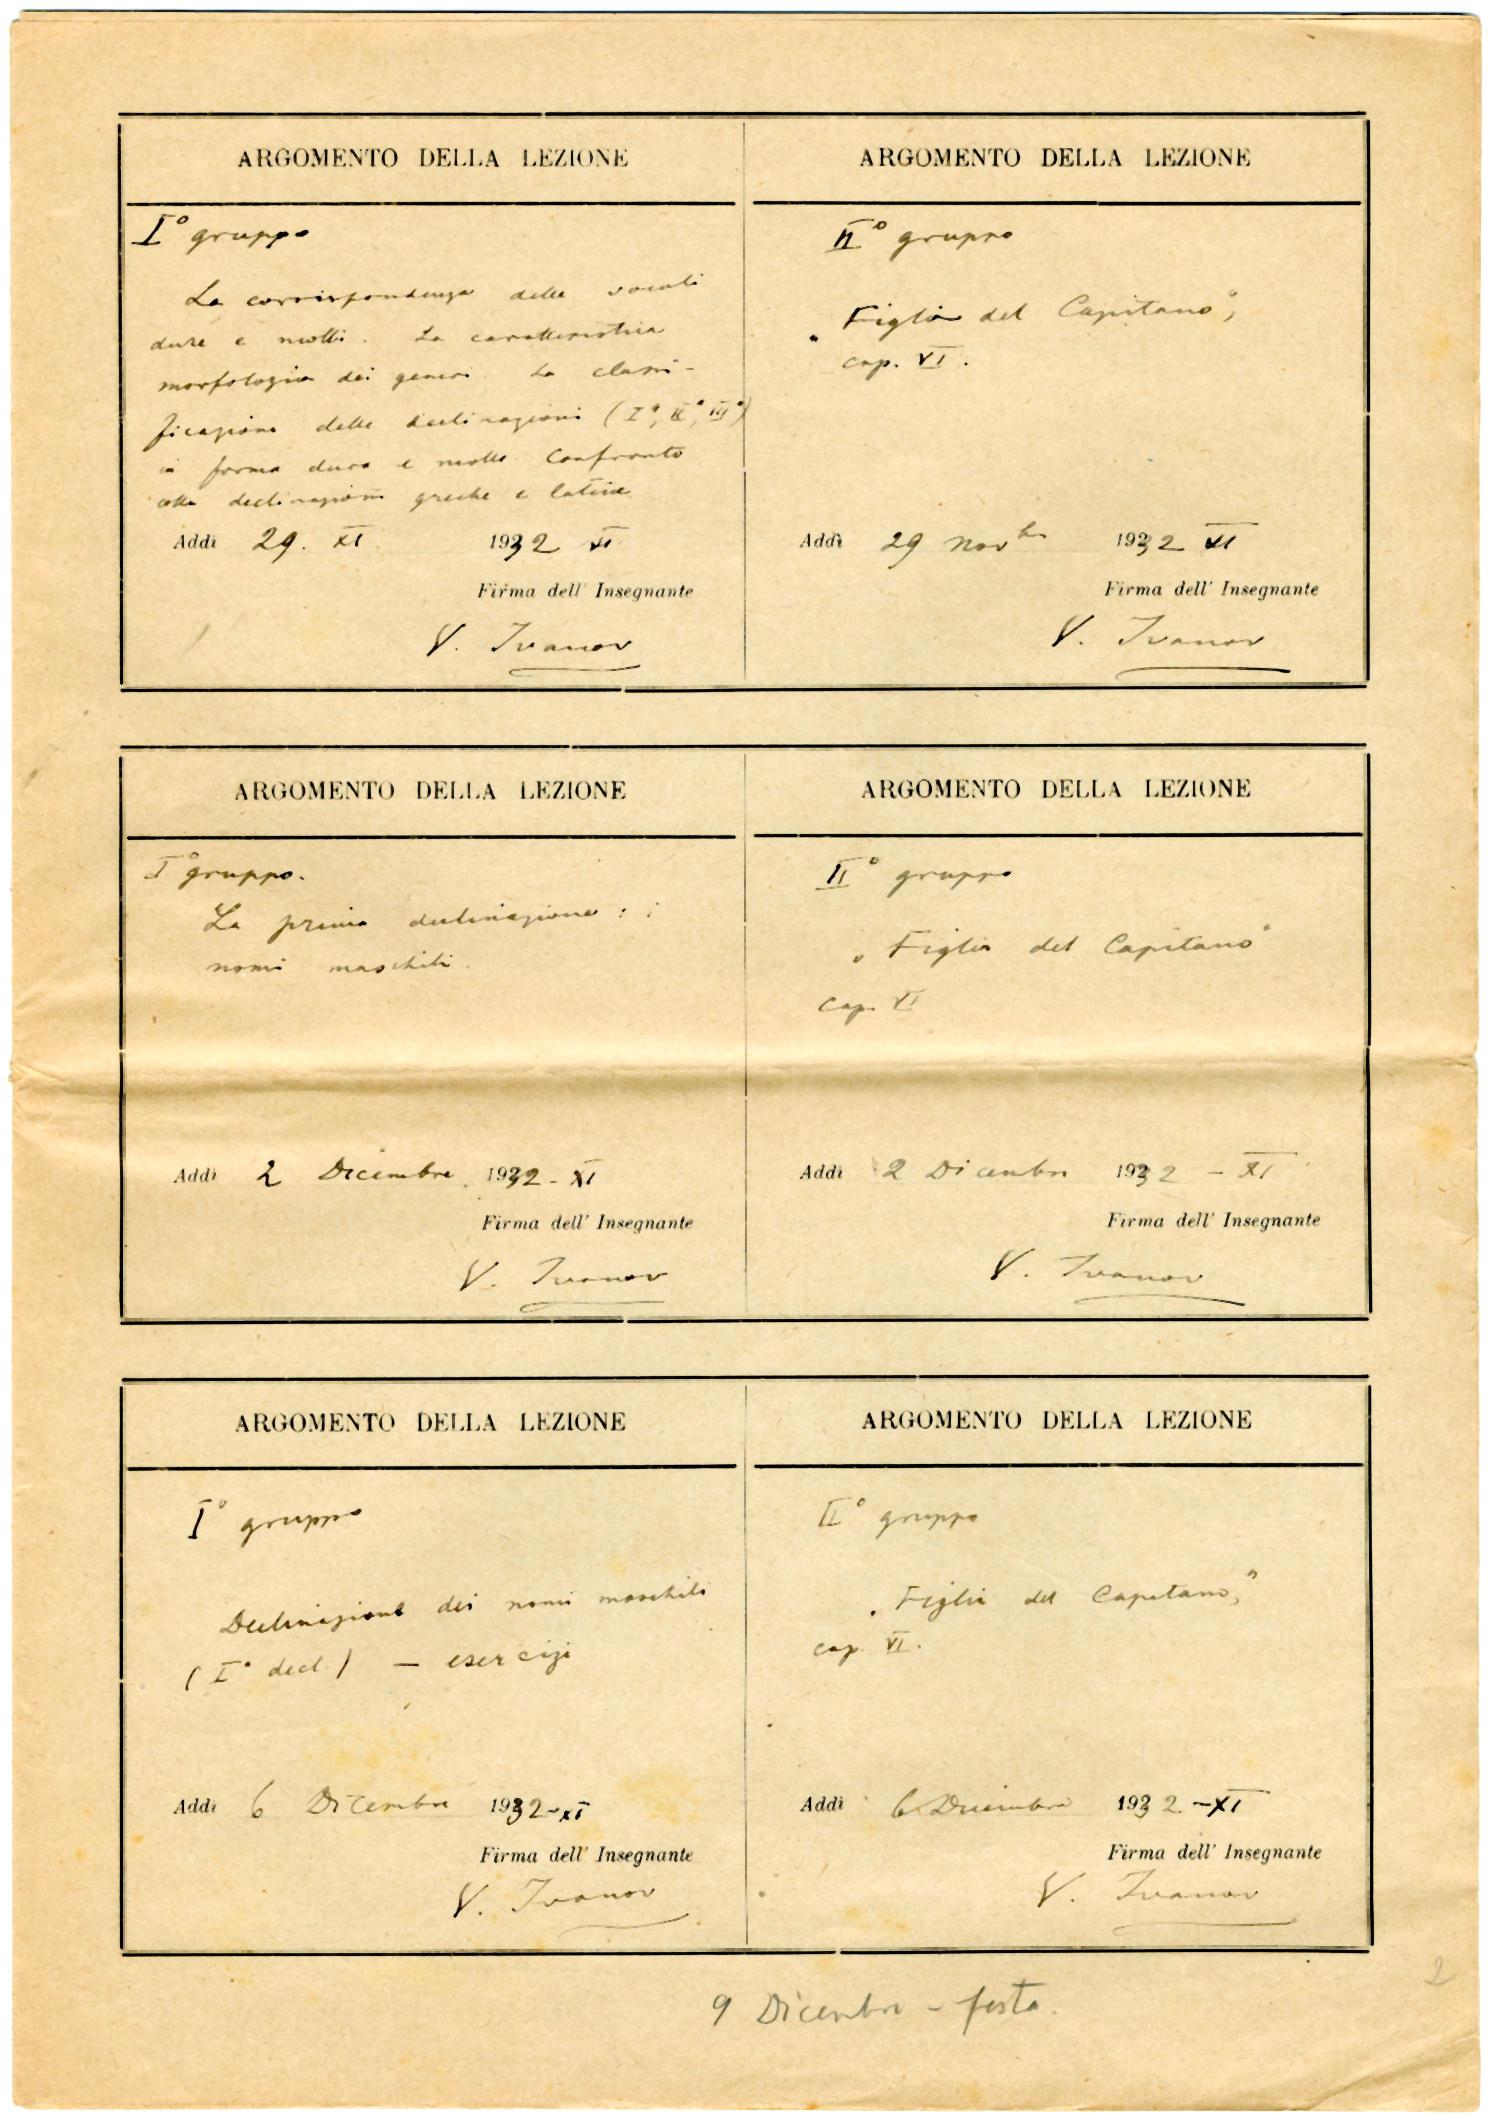 ARGOMENTO DELLA LEZIONE
I° gruppo
La corrispondenza delle vocali
dure e molli. La caratteristica
morfologia dei generi. La classi-
ficazione delle declinazioni (I°, II°, III°)
in forma dura e molle. Confronto
colle declinazioni greche e latine
Addì 29. XI 1932 XI
Firma dell' Insegnante
V. Ivanov
ARGOMENTO DELLA LEZIONE
II° gruppo
„Figlia del Capitano",
cap. VI.
Addì 29 Novbre 1932 XI
Firma dell' Insegnante
V. Ivanov
ARGOMENTO DELLA LEZIONE
I° gruppo.
La prima declinazione:
nomi maschili.
Addì 2 Dicembre 1932 - XI
Firma dell' Insegnante
V. Ivanov
ARGOMENTO DELLA LEZIONE
II° gruppo
„Figlia del Capitano"
cap. VI
Addì 2 Dicembre 1932 - XI
Firma dell' Insegnante
V. Ivanov
ARGOMENTO DELLA LEZIONE
I° gruppo
Declinazione dei nomi maschili
(I° decl.) — esercizi
Addì 6 Dicembre 1932 - XI
Firma dell' Insegnante
V. Ivanov
ARGOMENTO DELLA LEZIONE
II° gruppo
„Figlia del Capitano",
cap. VI.
Addì 6 Dicembre 1932 - XI
Firma dell' Insegnante
V. Ivanov
9 Dicembre - festa.
2